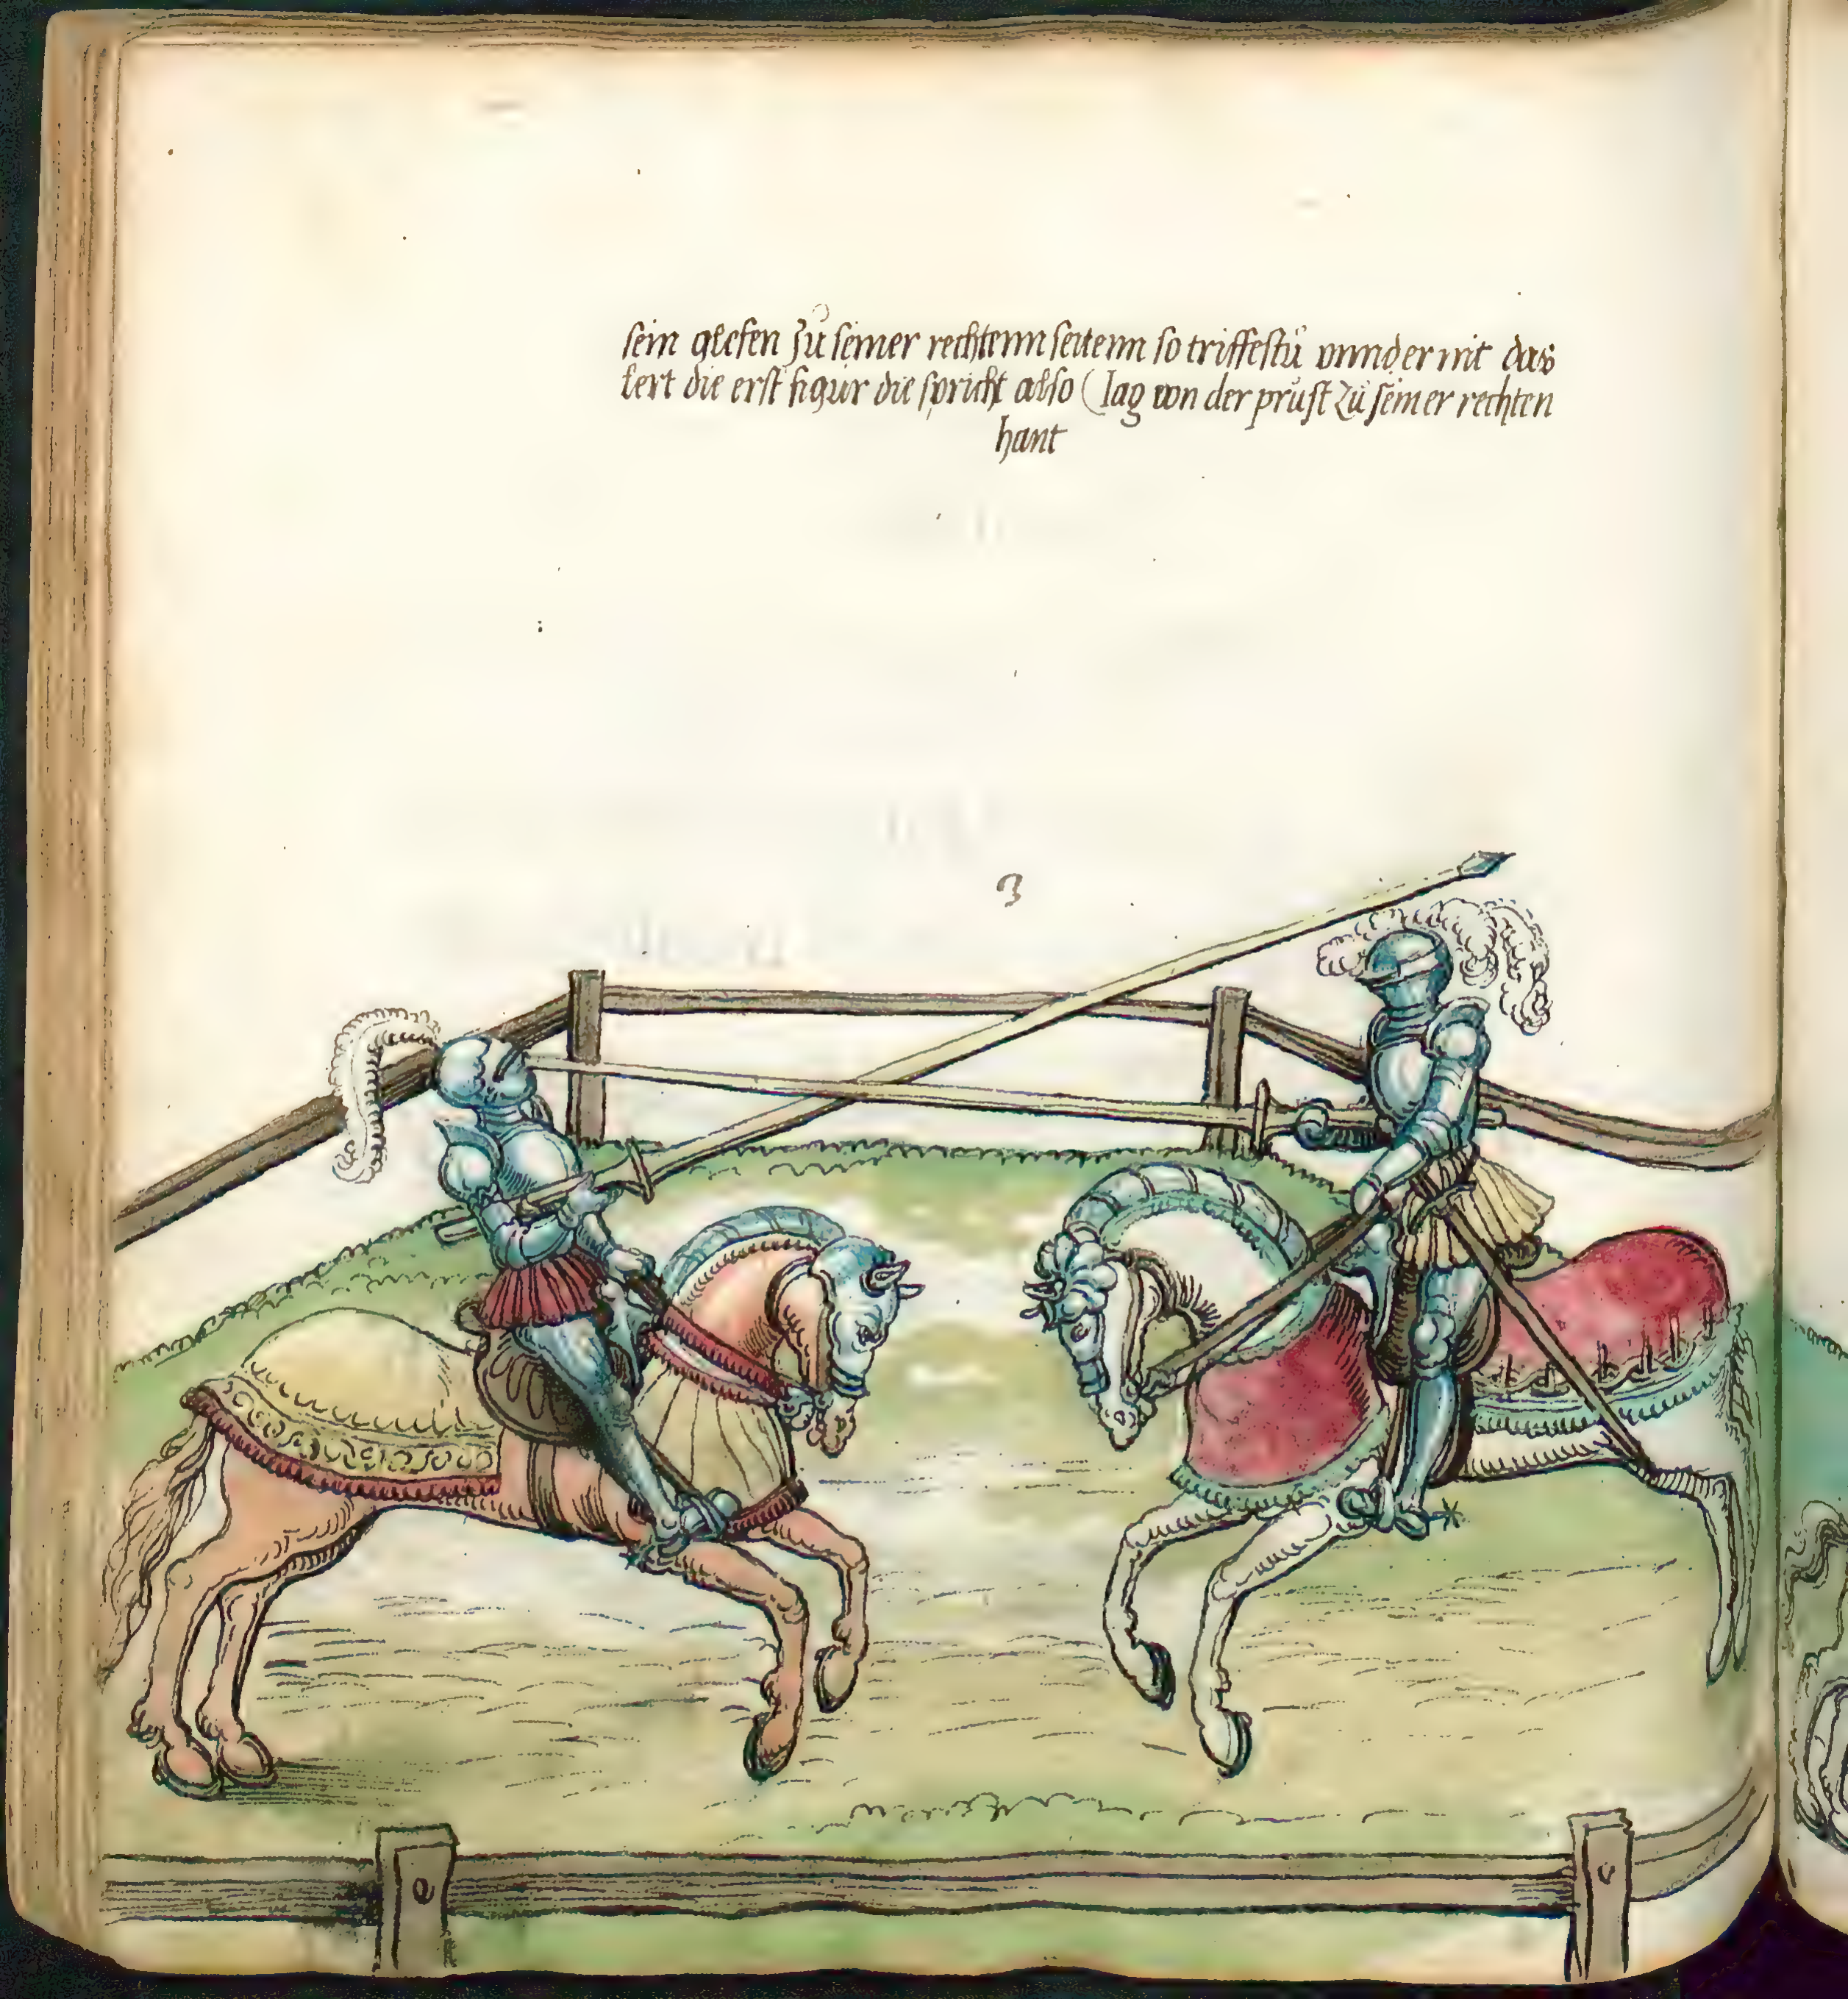 sein glefen zu seiner rechtenn seitenn so triffestu vnnder mit das
lert die erst figur die spricht also ( Jag von der prust zu seiner rechten
hant
3